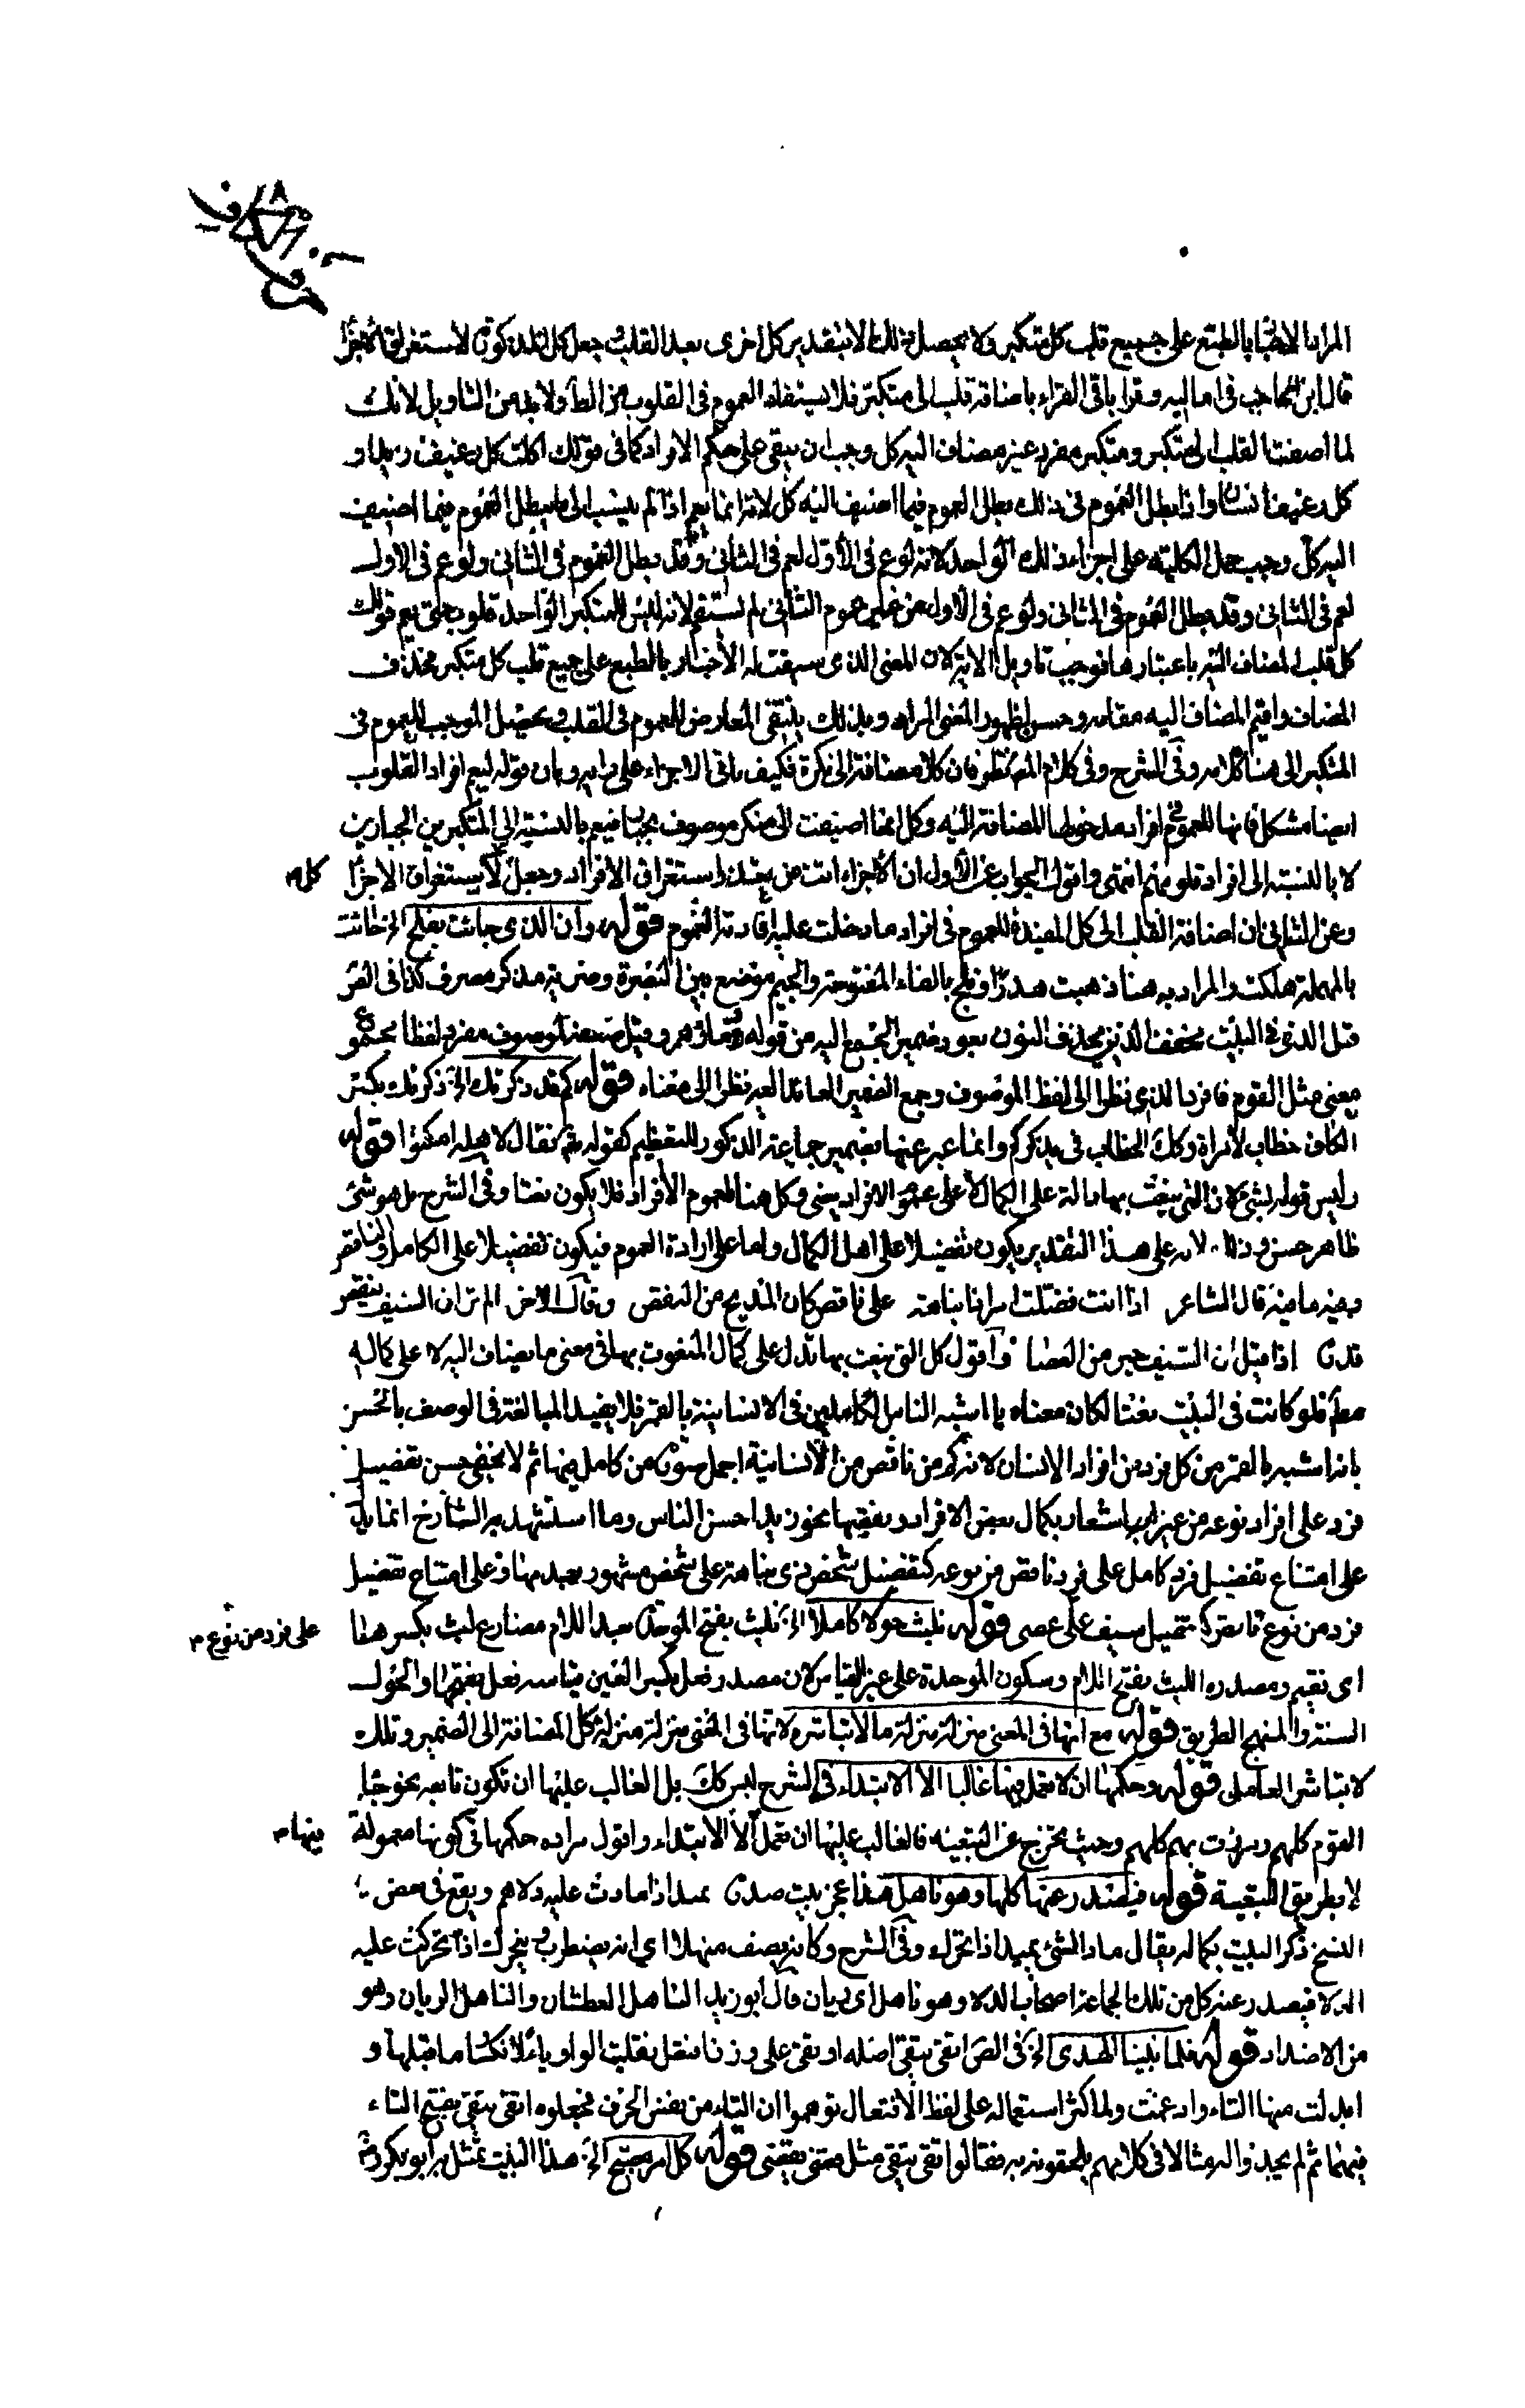 المراد الاخبار بالطبع على جميع قلب كل متكبر ولا يحصل ذلك الا بتقدير كل اخرى بعد القلب جعل كل لاستغراق الاجزا
قال ابن الحاجب فى اماليه وقرا باقى القراء باضافة قلب الى متكبر فلا يستفاد العموم فى القلوب من الظ ولا بد من التاويل لانك
لما اضفت القلب الى متكبر ومتكبر مفرد غير مضاف اليه كل وجب ان يبقى على حكم الافراد كما فى قولك اكلت كل رغيف زيد او
كل رغيف انسان واذا بطل العموم فى ذلك بطل العموم فيما اضيف اليه كل لانه انما يعم اذا لم ينسب الى ما يبطل العموم فيما اضيف
اليه كل وجب حمل الكلية على اجزاء ذلك الواحد لانه لو عم فى الاول لعم فى الثانى وقد بطل العموم فى الثانى ولو عم فى الاول
لعم فى الثانى وقد بطل العموم فى الثانى ولو عم فى الاول من غير عموم الثانى لم يستقم لانه ليس للمتكبر الواحد قلوب حتى يعم قولك
كل قلب المضاف اليه باعتبارها فوجب تاويل الاية لان المعنى الذى سيقت له الاخبار بالطبع على جميع قلب كل متكبر فحذف
المضاف واقيم المضاف اليه مقامه وحسن لظهور المعنى المراد وبذلك ينتفى المعارض للعموم فى القلب ويحصل الموجب للعموم فى
المتكبر الى هنا كلامه وفى الشرح وفى كلام المص نظر فان كلا مضافة الى نكرة فكيف ياتى الاجزاء على رايه وبان قوله ليعم افراد القلوب
ايضا مشكل فانها للعموم فى افراد مدخولها المضافة اليه وكل انما اضيفت الى منكر موصوف بجبار فيعم بالنسبة الى المتكبرين الجبارين
لا بالنسبة الى افراد قلوبهم انتهى واقول الجواب عن الاول ان الاجزاء اتت من بعد استغراق الافراد وجعل لاستغراق الاجزا كل م
وعن الثانى ان اضافة القلب الى كل المفيدة للعموم فى افراد ما دخلت عليه افادته العموم قوله وان الذى حانت بفلج الخ حانت
بالمهملة هلكت والمراد به هنا ذهبت هدرا وفلج بالفاء المفتوحة والجيم موضع بين البصرة وضرية مذكر مصرف كذا فى
قيل الذى فى البيت مخفف الذين بحذف النون بعود ضمير الجمع اليه من قوله دماؤهم وقيل صفة لموصوف مفرد لفظا مجموع
معنى مثل القوم فافرد الذى نظرا الى لفظ الموصوف وجمع الضمير العائد اليه نظرا الى معناه قوله كم قد ذكرتك الخ ذكرتك بكسر
الكاف خطاب لامراة وكك الخطاب فى بذكركم وانما عبر عنها بضمير جماعة الذكور للتعظيم كقوله تع فقال لاهله امكثوا قوله
وليس قوله بشئ لان التى ينعت بها دالة على الكمال لا على عموم الافراد يعنى وكل هنا لعموم الافراد فلا يكون نعتا وفى الشرح بل هو شئ
ظاهر حسن وذلك لانه على هذا التقدير يكون تفضيلا على اهل الكمال واما على ارادة العموم فيكون تفضيلا على الكامل والناقص
وفيه ما فيه قال الشاعر اذا انت فضلت امرا ذا نباهة على ناقص كان المديح من النقص وقال الاخر الم تر ان السيف ينقص
قدره اذا قيل ان السيف خير من العصا واقول كل التى ينعت بها تدل على كمال المنعوت بها فى معنى ما يضاف اليه لا على كماله
مط فلو كانت فى البيت نعتا لكان معناه يا اشبه الناس الكاملين فى الانسانية بالقمر فلا يفيد المبالغة فى الوصف بالحسن
بانه اشبه بالقمر من كل فرد من افراد الانسان لانه كم من ناقص من الانسانية اجمل صورة من كامل فيها ثم لا يخفى حسن تفضيل
فرد على افراد نوعه من غير اشعار بكمال بعض الافراد ونقصها نحو زيد احسن الناس وما استشهد به الشارح انما يدل
على امتناع تفضيل فرد كامل على فرد ناقص من نوعه كتفضيل شخص ذى نباهة على شخص مشهور بعدمها وعلى امتناع تفضيل
فرد من نوع ناقص كتفضيل سيف على عصى قوله نلبث حولا كاملا الخ نلبث بفتح الموحدة بعد اللام مضارع لبث بكسرها على فرد من نوع م
اى نقيم ومصدره اللبث بفتح اللام وسكون الموحدة على غير القياس لان مصدر فعل بكسر العين قياسه فعل بفتحها والحول
السنة والمنهج الطريق قوله مع انها فى المعنى منزلة منزلة ما لا تباشره لانها فى المعنى منزلة منزلة كل المضافة الى الضمير وتلك
لا تباشر العامل قوله وحكمها ان لا يعمل فيها غالبا الا الابتداء فى الشرح ليس كك بل الغالب عليها ان تكون تابعة نحو جاء
القوم كلهم ومررت بهم كلهم وحيث تخرج عن التبعية فالغالب عليها ان يعمل الا الابتداء واقول مراده حكمها فى كونها معمولة فيها م
لا بطريق التبعية قوله فيصدر عنها كلها وهو ناهل هذا عجز بيت صدره يميد اذا مادت عليه دلاهم ويقع فى بعض
النسخ ذكر البيت بكماله يقال ماد الشئ يميد اذا تحرك وفى الشرح وكانه يصف منهلا اى انه يضطرب ويتحرك اذا تحركت عليه
الدلا فيصدر عنه كل من تلك الجماعة اصحاب الدلا وهو ناهل اى ريان قال ابو زيد الناهل العطشان والناهل الريان وهو
من الاضداد قوله فلما تبينا الهدى الخ فى الص اتقى يتقى اصله اوتقى على وزن افتعل فقلبت الواو ياء لانكسار ما قبلها و
ابدلت منها التاء وادغمت ولما كثر استعماله على لفظ الافتعال توهموا ان التاء من نفس الحرف فجعلوه اتقى يتقى بفتح التاء
فيهما ثم لم يجدوا له مثالا فى كلامهم يلحقونه به فقالوا تقى يتقى مثل قضى يقضى قوله كل امرء مصبح الخ هذا البيت تمثل به ابو بكر رض